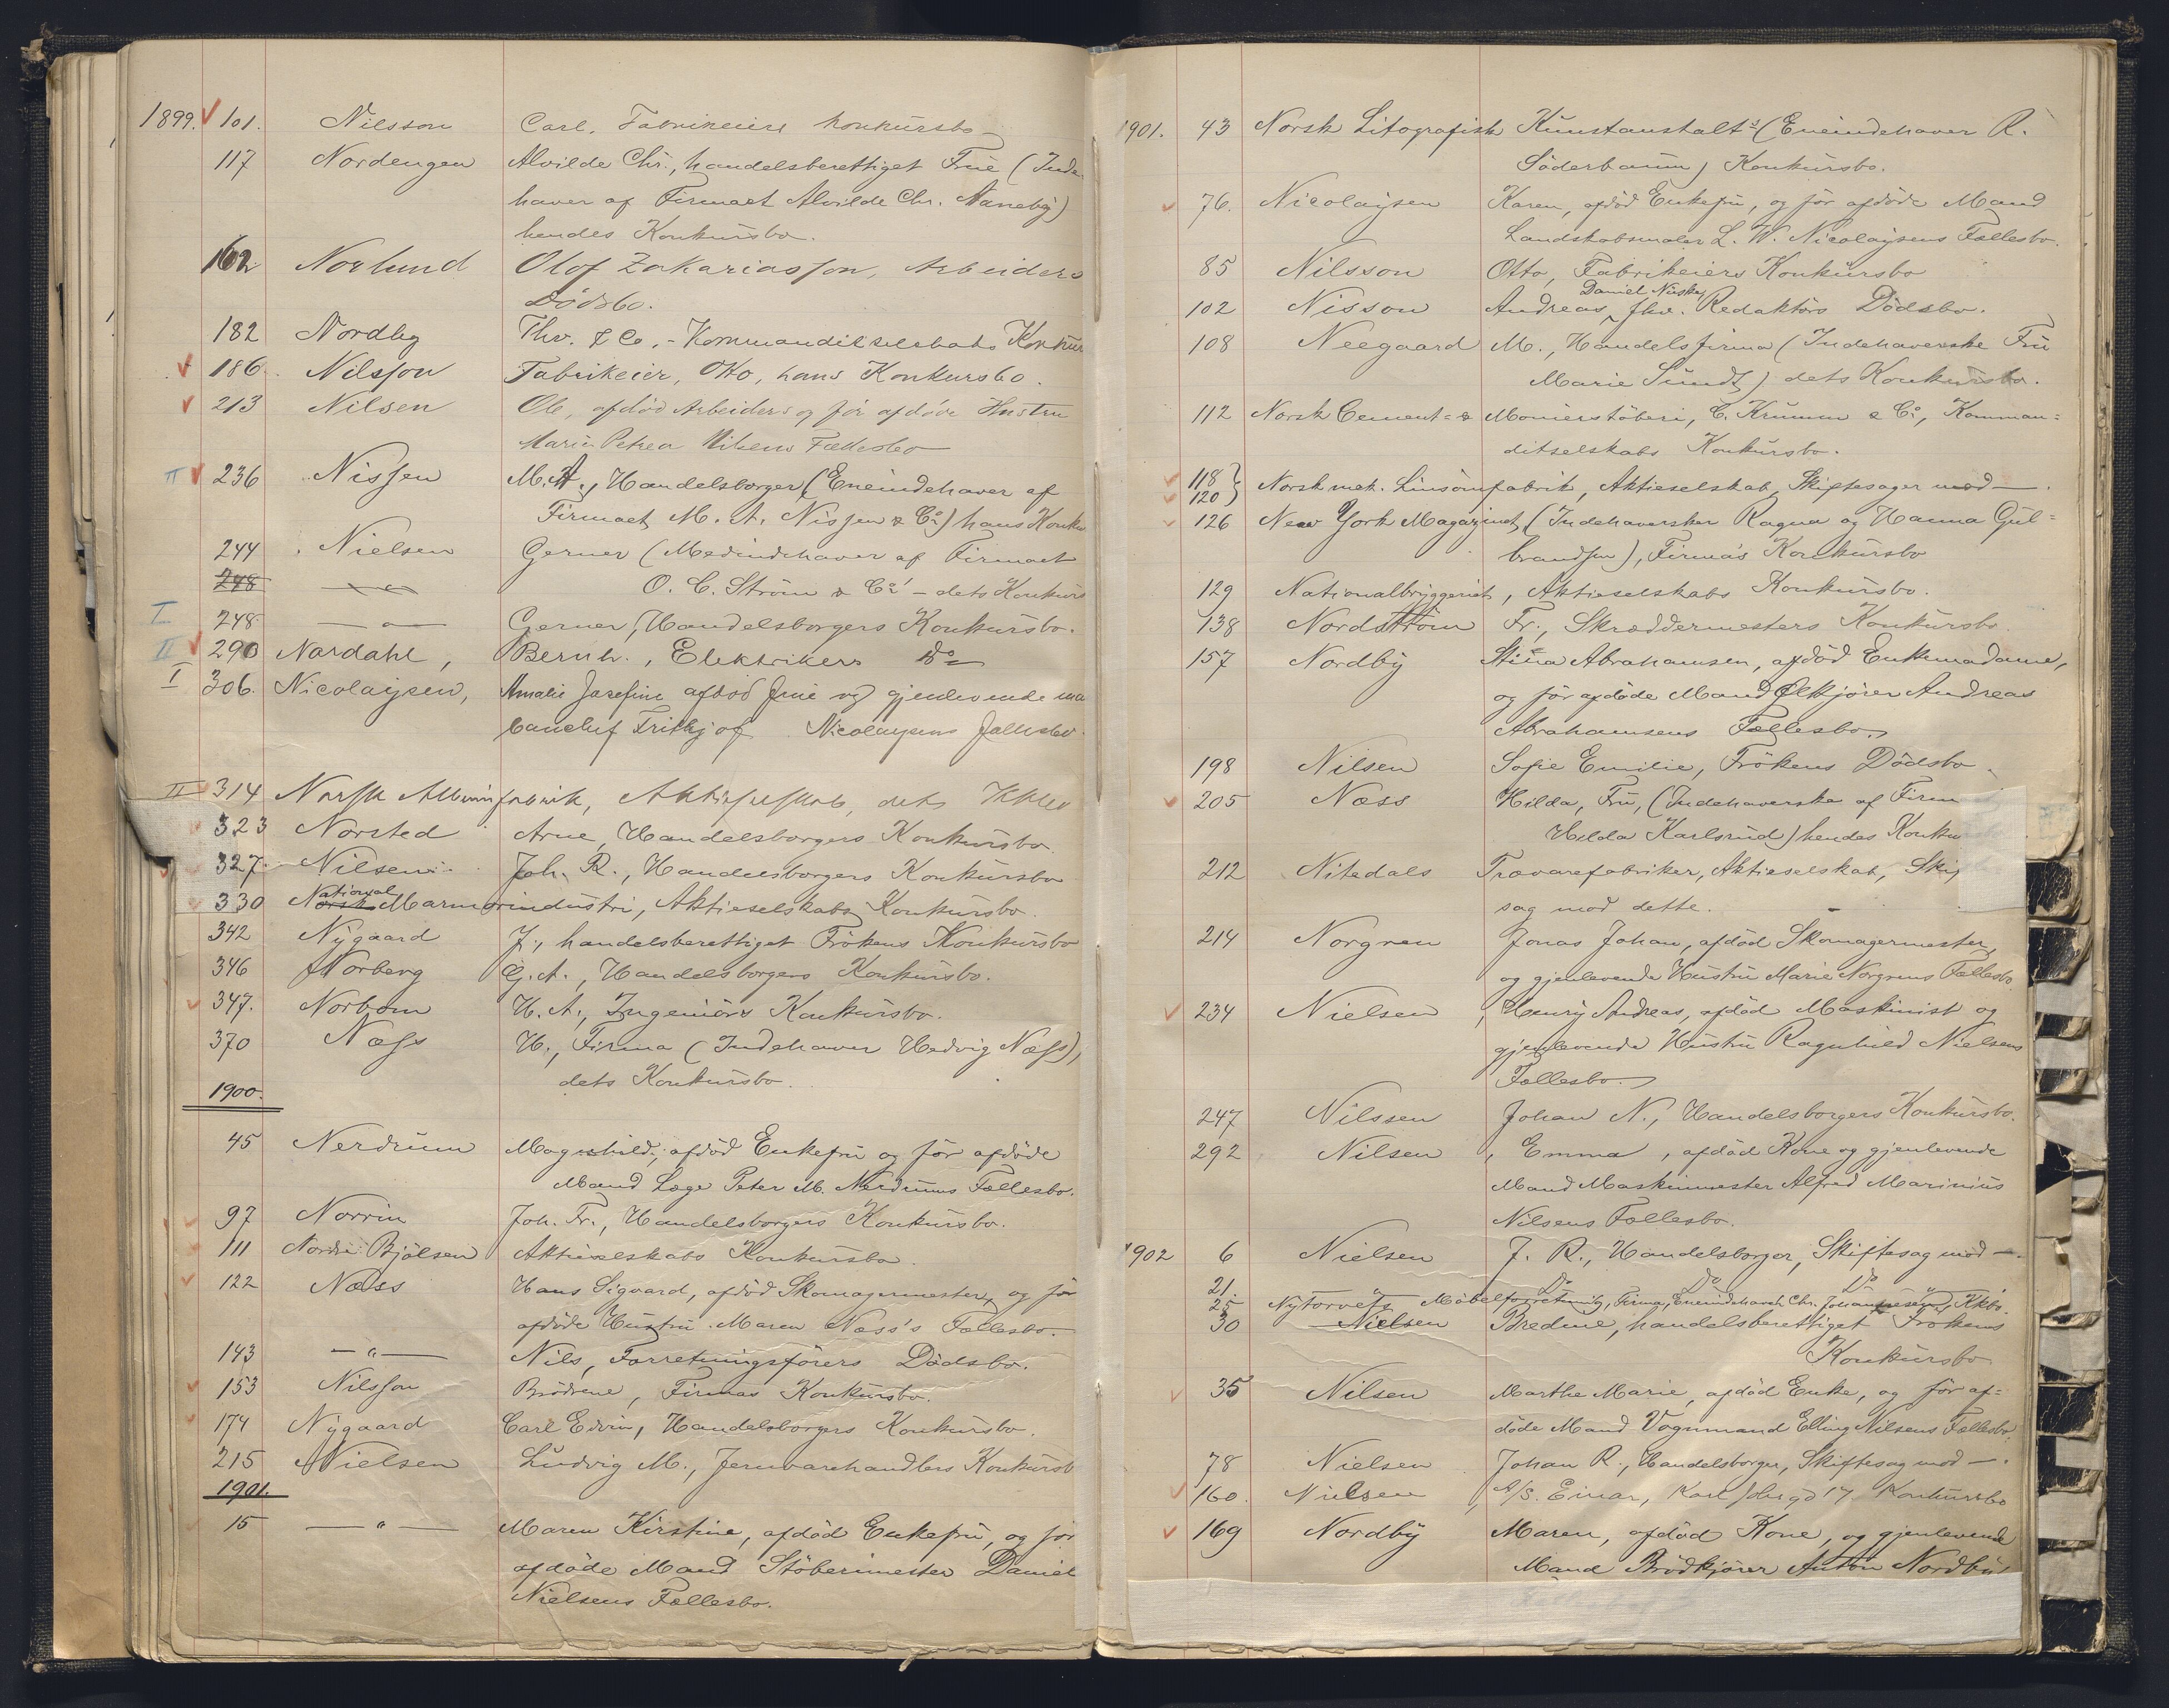 1899. 101. Nilsson Carl, Fabrikeiers Konkursbo
117 Nordengen Alvilde Chr., handelsberettiget Frue (Inde
haver af Firmaet Alvilde Chr. Naneby)
hendes Konkursbo.
162. Norlund Olof Zakariasson, Arbeiders
Dödsbo.
182 Nordby Thv. & Co. - Kommanditselskabs Konkur
186. Nilsson Fabrikeier, Otto, hans Konkursbo.
213 Nilsen Ole, afdöd Arbeiders og för afdöde Hustru
Maria Petrea Nilsens Fællesbo
II 236 Nissen M. A., Handelsborger (Eneindehaver af
Firmaet M. A. Nissen & Co) hans Konku
244 Nielsen Gerner (Medindehaver af Firmaet
248 — " — O. C. Ström & Co' - dets Konkurs
I 248 — " — Gerner, Handelsborgers Konkursbo.
II 290 Nardahl, Bernh., Elektrikers do
I 306. Nicolaysen, Amalie Josefine afdöd Frue og gjenlevende
Fritkjof Nicolaysens Fællesbo.
II 314 Norsk Albuminfabrik, Aktieselskab, dets
323 Norsted Arne, Handelsborgers Konkursbo.
327. Nilsen Joh. R., Handelsborgers Konkursbo
National
330 Norsk Marmorindustri, Aktieselskabs Konkursbo.
342 Nygaard J., handelsberettiget Frökens Konkursbo
346 Norberg G. A., Handelsborgers Konkursbo.
347. Norbom H. A., Ingeniörs Konkursbo.
370 Næss H., Firma (Indehaver Hedvig Næss),
dets Konkursbo.
1900.
45 Nerdrum Magnhild, afdöd Enkefru og för afdöde
Mand Læge Peter M. Nerdrums Fællesbo.
97 Norrin Joh. Fr., Handelsborgers Konkursbo.
111 Nordre Bjölsen Aktieselskabs Konkursbo.
122 Næss Hans Sigvard, afdöd Skomagermester, og för
afdöde Hustru Maren Næss's Fællesbo.
143 — " — Nils, Forretningsförers Dödsbo.
153 Nilsson Brödrene, Firmas Konkursbo.
174 Nygaard Carl Edvin, Handelsborgers Konkursbo.
215 Nielsen Ludvig M., Jernvarehandlers Konkursb
1901.
15 — " — Maren Kirstine, afdöd Enkefru, og för
afdöde Mand Stöberimester Daniel
Nielsens Fællesbo.
1901. 43 Norsk Litografisk Kunstanstalt's (Eneindehaver R.
Söderbaum) Konkursbo.
76. Nicolaysen Karen, afdöd Enkefru, og för afdöde Mand
Landskabsmaler L. W. Nicolaysens Fællesbo.
85 Nilsson Otto, Fabrikeiers Konkursbo
Daniel
102 Nisson Andreas, fhv. Redaktörs Dödsbo.
108 Neegaard M., Handelsfirma (Indehaverske Fru
Marie Sundt) dets Konkursbo.
112 Norsk Cement- & Monierstöberi, C. Krumm & Co, Komman=
ditselskabs Konkursbo.
118
120 } Norsk mek. Linsömfabrik, Aktieselskab, Skiftesager mod —.
126 New York Magazinet, (Indehaversker Ragna og Hanna Gul=
brandsen), Firmas Konkursbo
129 Nationalbryggeriet, Aktieselskabs Konkursbo.
138 Nordström Fr., Skræddermesters Konkursbo.
157 Nordby Stina Abrahamsen, afdöd Enkemadame,
og för afdöde Mand Ølkjörer Andreas
Abrahamsens Fællesbo.
198 Nilsen Sofie Emilie, Frökens Dödsbo.
205 Næss Hilda, Fru, (Indehaverske af Firm
Hilda Karlsrud) hendes Konku
212 Nitedals Trævarefabriker, Aktieselskab, Skif
sag mod dette.
214 Norgren Jonas Johan, afdöd Skomagermester,
og gjenlevende Hustru Marie Norgrens Fællesbo.
234 Nielsen, Henry Andreas, afdöd Maskinist og
gjenlevende Hustru Ragnhild Nielsens
Fællesbo.
247 Nilssen Johan N., Handelsborgers Konkursbo.
292 Nilsen, Emma, afdöd Kone og gjenlevende
Mand Maskinmester Alfred Marinius
Nilsens Fællesbo.
1902 6 Nielsen J. R., Handelsborger, Skiftesag mod —.
21. " Do Do Do "
25 Nytorvets Möbelforretning, Firma, Eneindehaver Chr. Johannesens, Kkbo.
30 Nielsen Bredine, handelsberettiget Frökens
Konkursbo
35 Nilsen Marthe Marie, afdöd Enke, og för af=
döde Mand Vognmand Elling Nilsens Fællesbo.
78 Nielsen Johan R., Handelsborger, Skiftesag mod —.
160. Nielsen, A/S. Einar, Karl Johgd 17 Konkursbo
169 Nordby Maren, afdöd Kone, og gjenlevende
Mand Brödkjörer Anton Nordbys